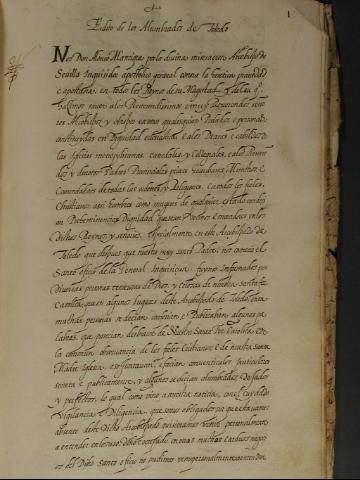 1
Edicto de los Alumbrados de Toledo
Nos Don Alonso Manrique por la divina miseracion Arcobispo de
Sevilla Inquisidor apostolico general contra la heretica pravedad
e apostasia, en todos los Reynos de su Magestad
hacemos saver a los Reverendissimos e muy Reverendos señores
Arcobispos y obispos e a otros qualesquier Prelados e personas
constituydas en Dignidad eclesiastica, e a los Deanes e cabildos de
las Iglesias metropolitanas catedrales y collegiales, e a los Priores
y devotos Padres Provinciales priores guardianes Ministros e
Comendadores de todas las ordenes y Religiones, e a todos los fieles
Christianos asi hombres como mugeres de qualquier estado condicion
Preheminencia y Dignidad que sean vezinos e moradores en los
dichos Reynos y señorios, especialmente en este Arcobispado de
Toledo que despues que nuestro muy sancto Padre nos cometio el
Santo oficio de la General Inquisicion, fuymos informados por
diversas personas temerosas de Dios, y celosas de nuestra sancta fe
Catolica, que en algunos lugares deste Arcobispado de Toledo entre
muchas personas se decian conferian e Publicavan algunas palabras
que parecian desviarse de Nuestra Sancta Fee Catolica e de
la comun observancia de los fieles Cristianos e de nuestra sancta
Madre Iglesia, e se juntavan e facian conventiculos particulares
secreta e publicamente, y algunos se decian alumbrados Dexados
y perfectos, lo qual como vino a nuestra noticia, con el cuydado
Vigilancia y Diligencia, que somos obligados
absente deste Dicho Arcobispado quisieramos venir personalmente
a entender en lo suso Dicho e ocupado en otros muchos e arduos negocios
del Dicho Santo oficio no pudimos